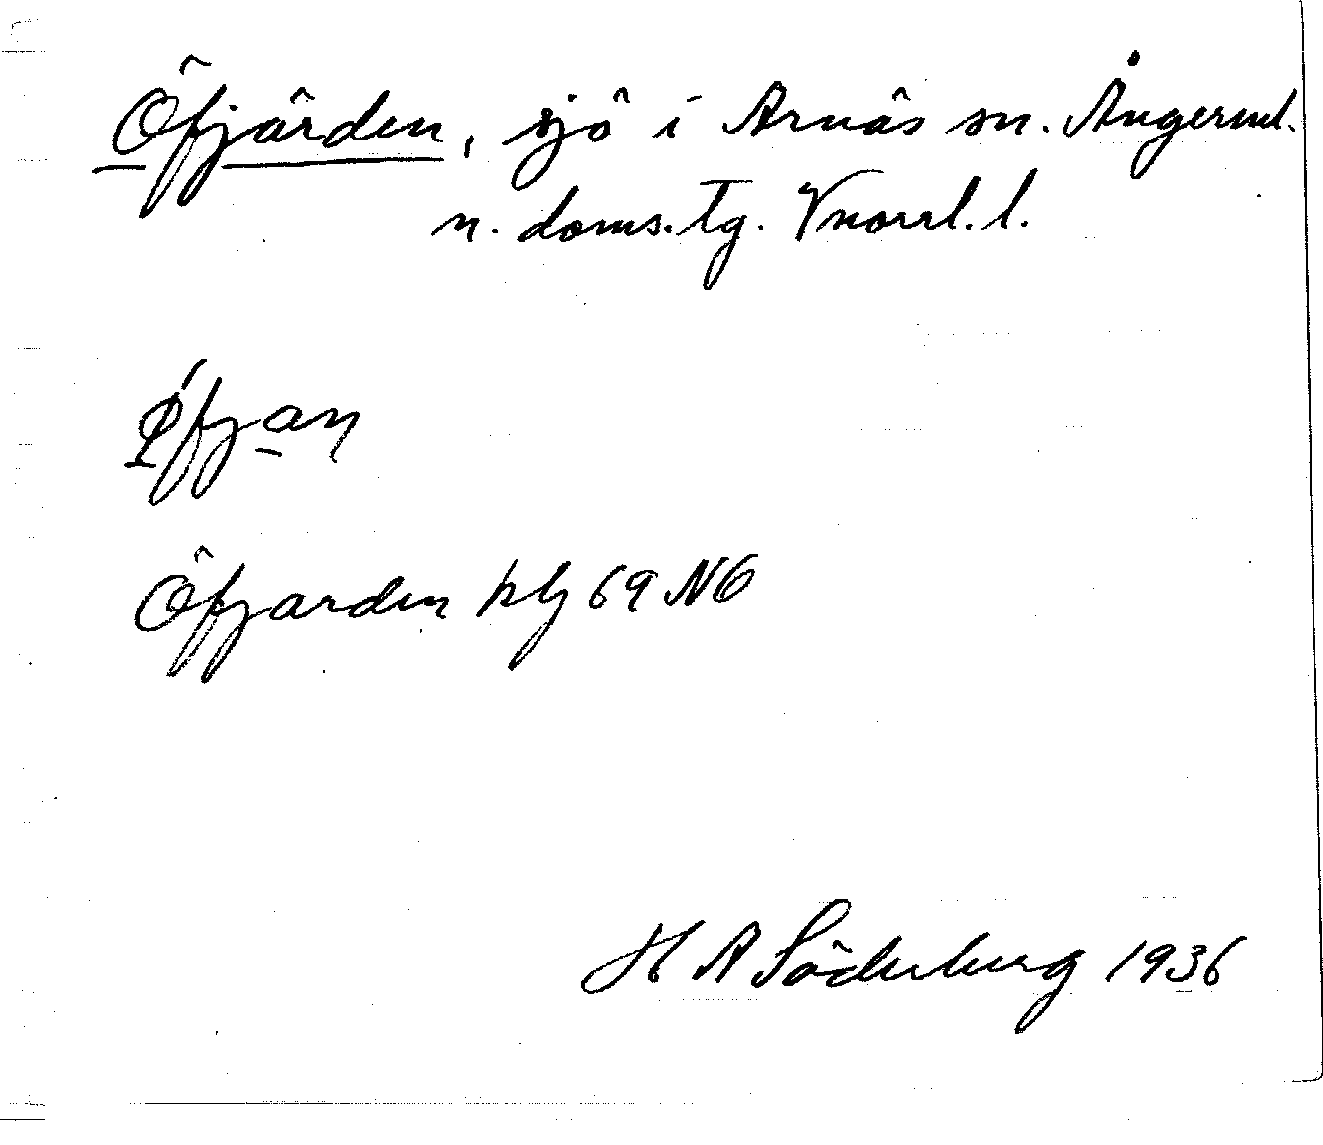 Öfjärden, sjö i Arnäs sn. Ångerml.
n. doms. tg. Vnorrl. l.
Öfjarden kbl 69 NO
H A Söderberg 1936